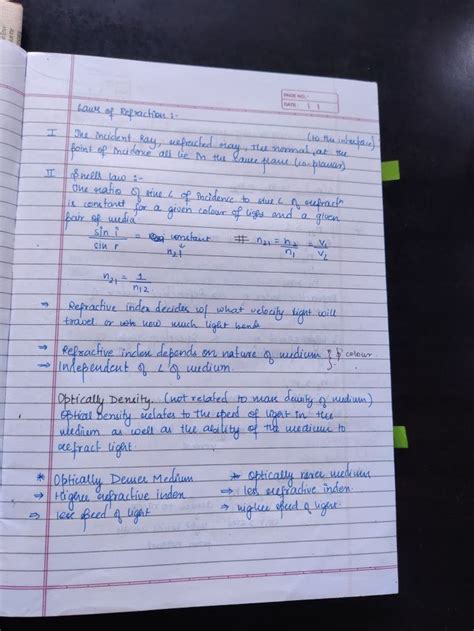 PAGE NO.:
DATE: / /
Laws of Refraction :-
(to the interface)
I The Incident Ray, refracted ray, the normal, at the
point of Incidence all lie in the same plane (co-planar)
II Snells law :-
The ratio of sine ∠ of incidence to sine ∠ of refractn
is constant for a given colour of light and a given
pair of media
sin i / sin r = constant # n21 = n2/n1 = v1/v2
n21
n21 = 1/n12
⇒ Refractive index decides w/ what velocity light will
travel or how much light bends
⇒ Refractive index depends on nature of medium } & colour
⇒ Independent of ∠ of medium.
Optically Density. (not related to mass density of medium)
Optical Density relates to the speed of light in the
medium as well as the ability of the medium to
refract light.
* Optically Denser Medium * Optically rarer medium
⇒ Higher refractive index ⇒ less refractive index.
⇒ less speed of light ⇒ higher speed of light.